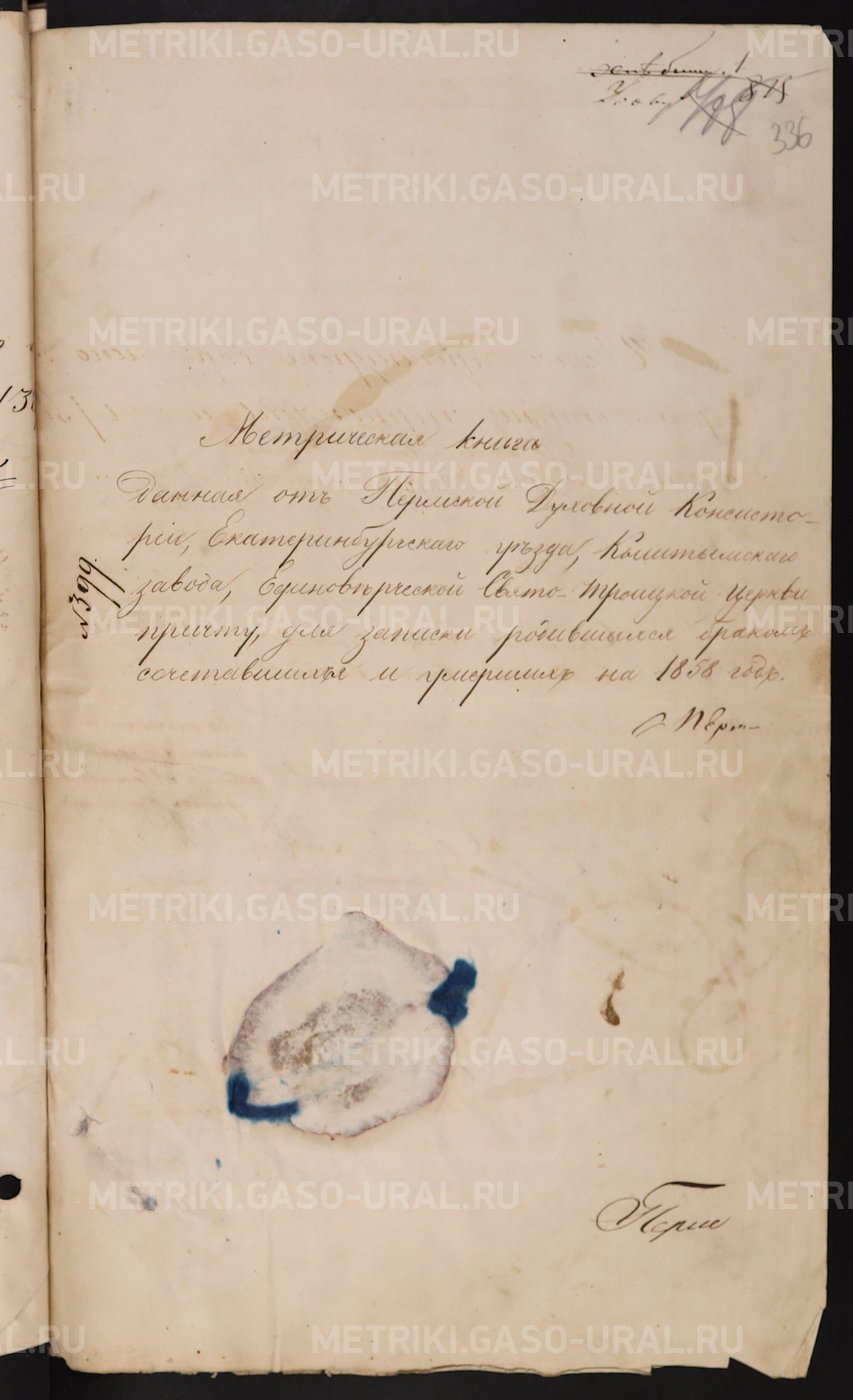 815
336
Метрическая книга
Данная отъ Пермской Духовной Консисто-
ріи, Екатеринбургскаго уѣзда, Кыштымскаго
завода, Единовѣрческой Свято-Троицкой церкви
причту, для записки родившихся бракомъ
сочетавшихся и умершихъ на 1858 годъ.
№399.
METRIKI.GASO-URAL.RU